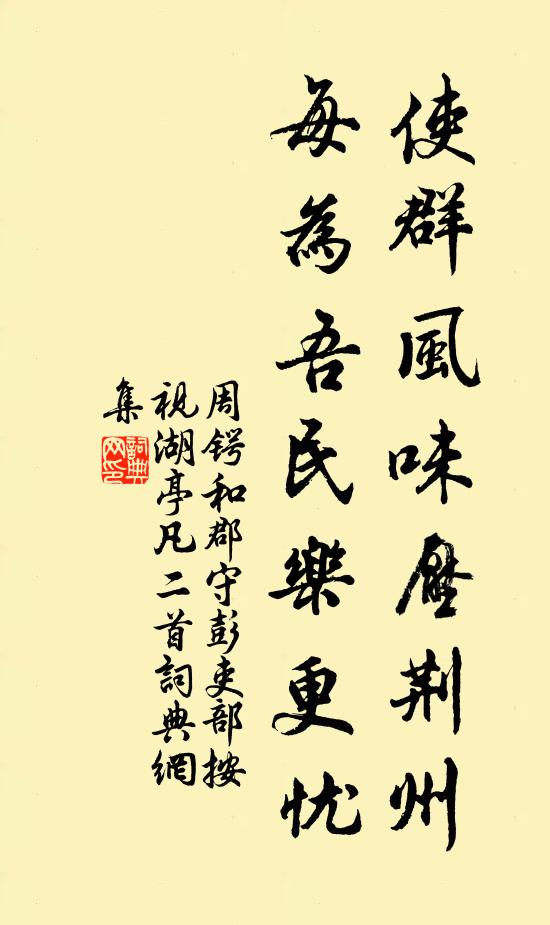 使群風味壓荆州
每為吾民樂更忧
周锷和郡守彭吏部按
視湖亭凡二首詞典網
集
詞典網印